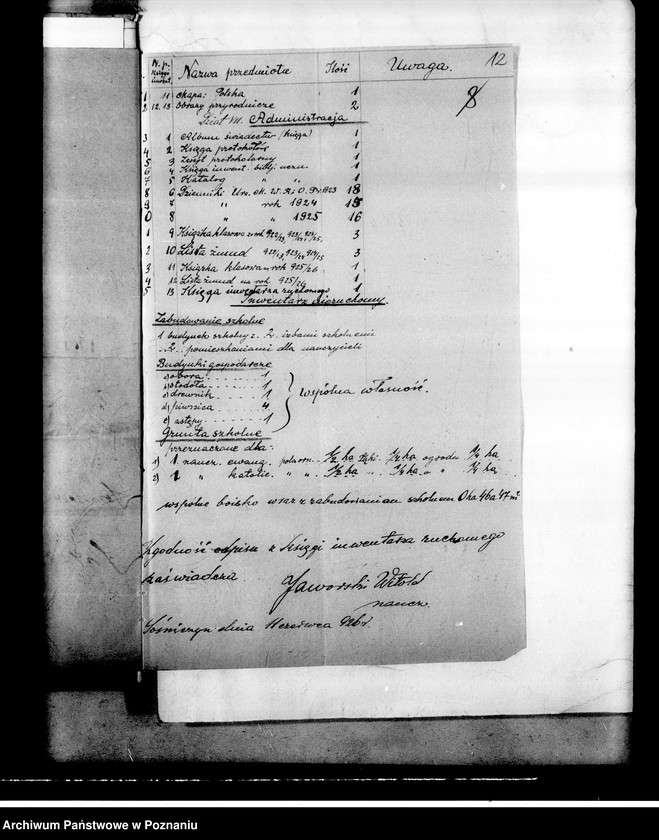 12
N. p. Księgi inwent. Nazwa przedmiotu Ilość Uwaga.
1 11 Mapa: Polska 1
2 12.13 Obrazy przyrodnicze 2
8
Dział VII. Administracja
3 1 Album świadectw (księga) 1
4 2 Księga protokołów 1
5 3 Zeszyt protokolarny 1
6 4 Księga inwent. bibl. uczn. 1
7 5 Katalog " " 1
8 6 Dzienniki Urz. M. W. R. i O. P. r. 1923 18
9 7 " rok 1924 15
0 8 " " 1925 16
1 9 Książka klasowa z rok 922/23, 923/24, 924/25. 3
2 10 Lista żmud 922/23, 923/24, 924/25 3
3 11 Książka klasowa rok 925/26 1
4 12 Lista żmud na rok 925/26 1
5 13 Księga inwentarza ruchomego 1
Inwentarz nieruchomy
Zabudowanie szkolne
1 budynek szkolny z 2. izbami szkolnemi
2 pomieszkaniami dla nauczycieli
Budynki gospodarcze
a) obora 1
b) stodoła 1
c) drewnik 1
d) piwnica 4
e) ustępy 1
wspólna własność.
Grunta szkolne
przeznaczone dla:
1) 1. naucz. ewang. pola orn. 1/2 ha łąki 1/4 ha ogrodu 1/4 ha
2) 1 " katolic. " " 1/2 ha " 1/4 ha " " 1/4 ha
wspólne boisko wraz z zabudowaniem szkolnem 0 ha 46 a 47 m²
Zgodność odpisu z księgi inwentarza ruchomego
zaświadcza
Jaworski Witold
naucz.
dnia 11 czerwca 926 r.
Archiwum Państwowe w Poznaniu